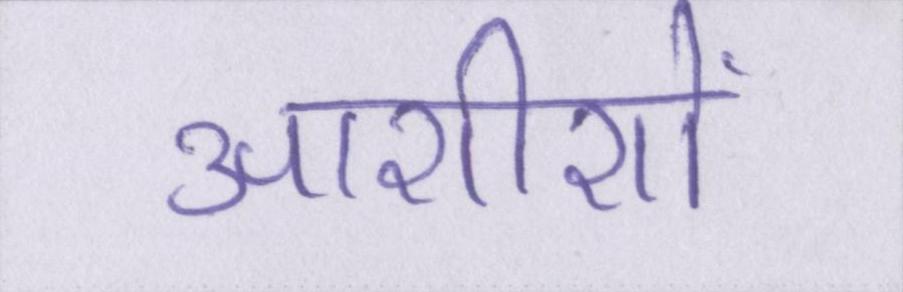 आशीशों